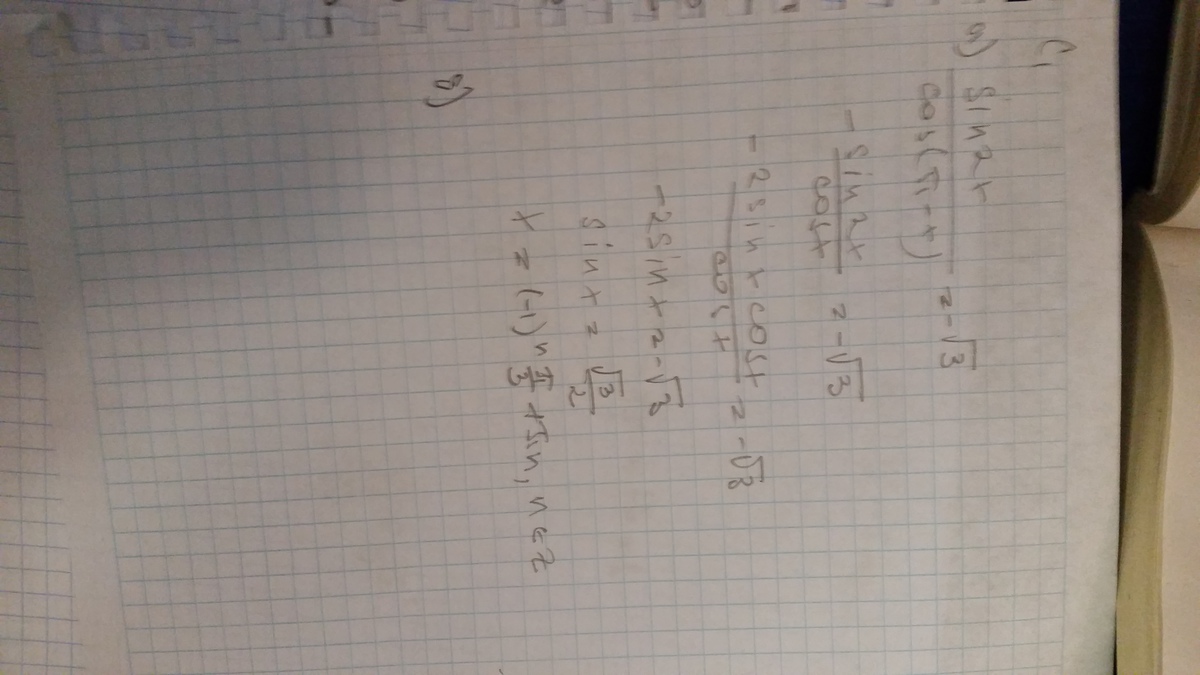 C1
а) sin2t / cos(π-t) = -√3
- sin2t / cost = -√3
- 2sint cost / cost = -√3
-2sint = -√3
sint = √3/2
t = (-1)ⁿ π/3 + πn, n∈Z
б)